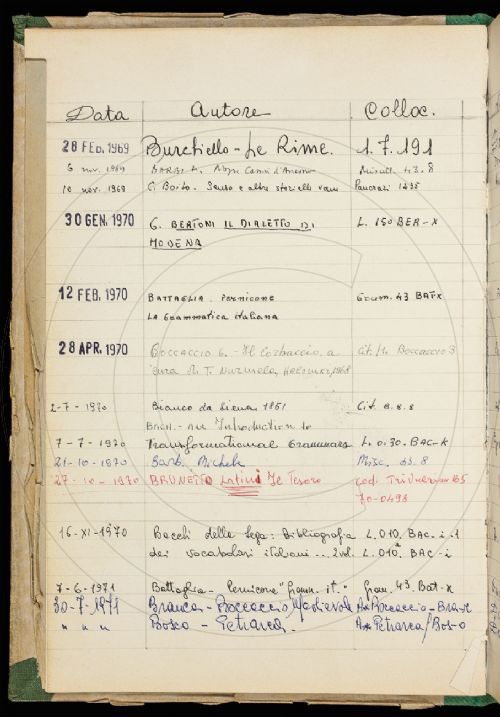 Data Autore Colloc.
28 FEB. 1969 Burchiello - Le Rime. 1.7.191
6 nov. 1969 BARBI M. 43.8
10 nov. 1969 C. Boito. Senso e altre storielle vane Pancrazi 1435
30 GEN. 1970 G. BERTONI IL DIALETTO DI L. 150 BER-X
MODENA
12 FEB. 1970 BATTAGLIA. Pernicone Gram. 43 BAT-X
LA Grammatica italiana
28 APR. 1970 BOCCACCIO G. - Il Corbaccio, a Cit. M. Boccaccio 3
cura di T. Nurmela, Helsinki, 1968
2-7-1970 Bianco da Siena 1851 Cit. 8.8.8
BACH. - An Introduction to
7-7-1970 Transformational Grammars L. 0.30. BAC-K
21-10-1970 Barbi Michele Misc. 33.8
27-10-1970 BRUNETTO Latini Il Tesoro cod. Trivulziano 165
70-0498
16-XI-1970 Bacchi della Lega: Bibliografia L.010. BAC-i-1
dei vocabolari italiani... 2 vol. L.010. BAC-i
7-6-1971 Battaglia - Pernicone "Gramm. it." Gram. 43. Bat-X
30-7-1971 Branca - Boccaccio Medievale A* Boccaccio - Bra-X
" " " Bosco - Petrarca. A* Petrarca/Bos-O